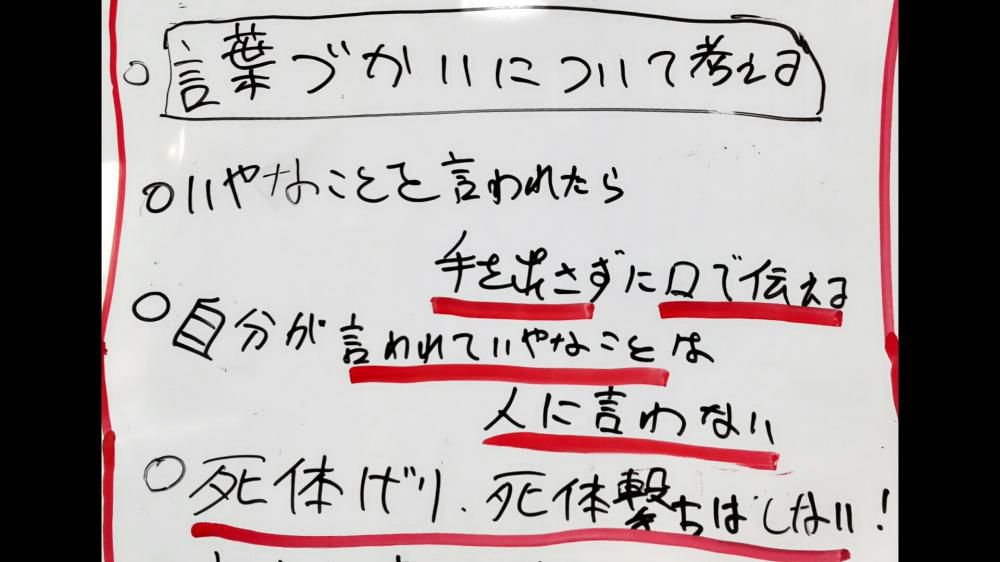 ○言葉づかいについて考える
○いやなことを言われたら
手を出さずに口で伝える
○自分が言われていやなことは
人に言わない
○死体げり、死体撃ちはしない!